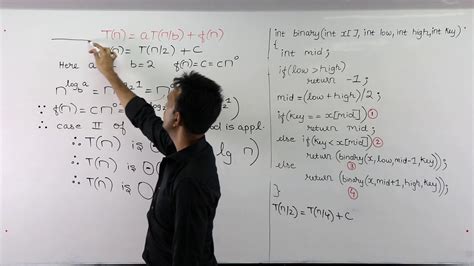 T(n) = aT(n/b) + f(n)
T(n) = T(n/2) + C
Here a b = 2 f(n) = C = Cn⁰
n^log_b a = n^log_2 1 = n⁰
∴ f(n) = Cn⁰ = n^log_2 1
∴ case II of od is appl.
∴ T(n) is Θ lg n)
∴ T(n) is Θ
∴ T(n) is O
int binary(int x[], int low, int high, int key)
{
int mid;
if(low > high)
return -1;
mid = (low + high)/2;
if(key == x[mid]) ①
return mid;
else if(key < x[mid]) ②
return (binary(x, low, mid-1, key));
③
else
return (binary(x, mid+1, high, key));
④
}
T(n/2) = T(n/4) + C